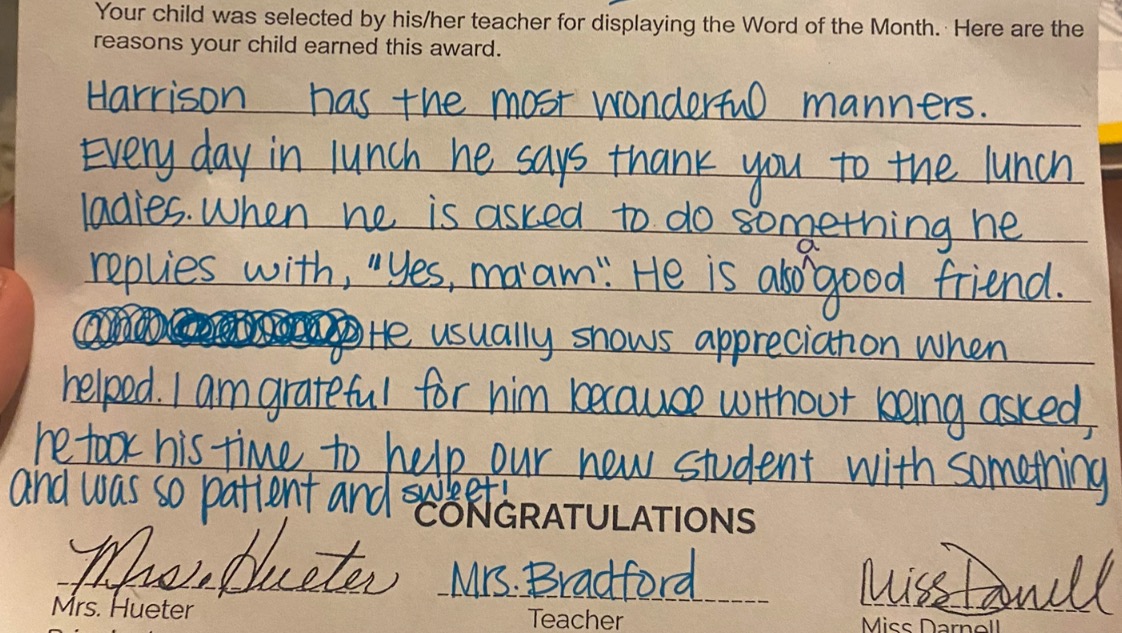 Your child was selected by his/her teacher for displaying the Word of the Month. Here are the
reasons your child earned this award.
Harrison has the most wonderful manners.
Every day in lunch he says thank you to the lunch
ladies. When he is asked to do something he
replies with, "Yes, ma'am". He is also a good friend.
He usually shows appreciation when
helped. I am grateful for him because without being asked,
he took his time to help our new student with something
and was so patient and sweet!
CONGRATULATIONS
Mrs. Hueter Mrs. Bradford Miss Darnell
Mrs. Hueter Teacher Miss Darnell